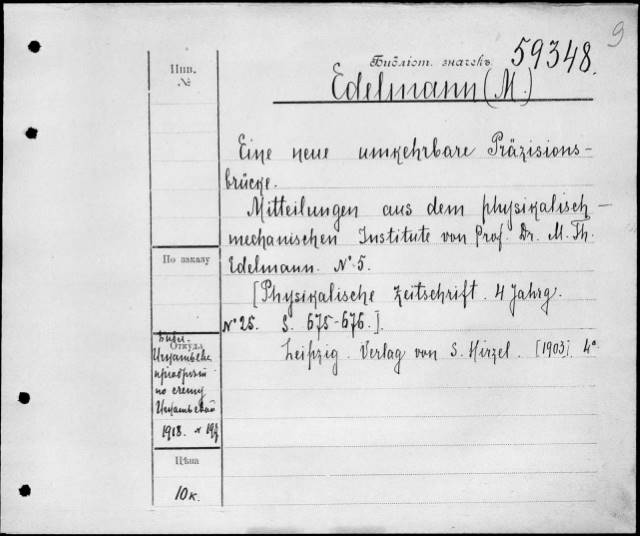 9
Библіот. значекъ 59348.
Инв.
№
Edelmann (M.)
Eine neue umkehrbare Präzisions-
brücke.
Mitteilungen aus dem physikalisch-
mechanischen Institute von Prof. Dr. M. Th.
По заказу
Edelmann. № 5.
[Physikalische Zeitschrift. 4 Jahrg.
№ 25. S. 675-676.].
Leipzig. Verlag von S. Hirzel. [1903]. 4°
Откуда
по счету
1918.
Цѣна
10 к.